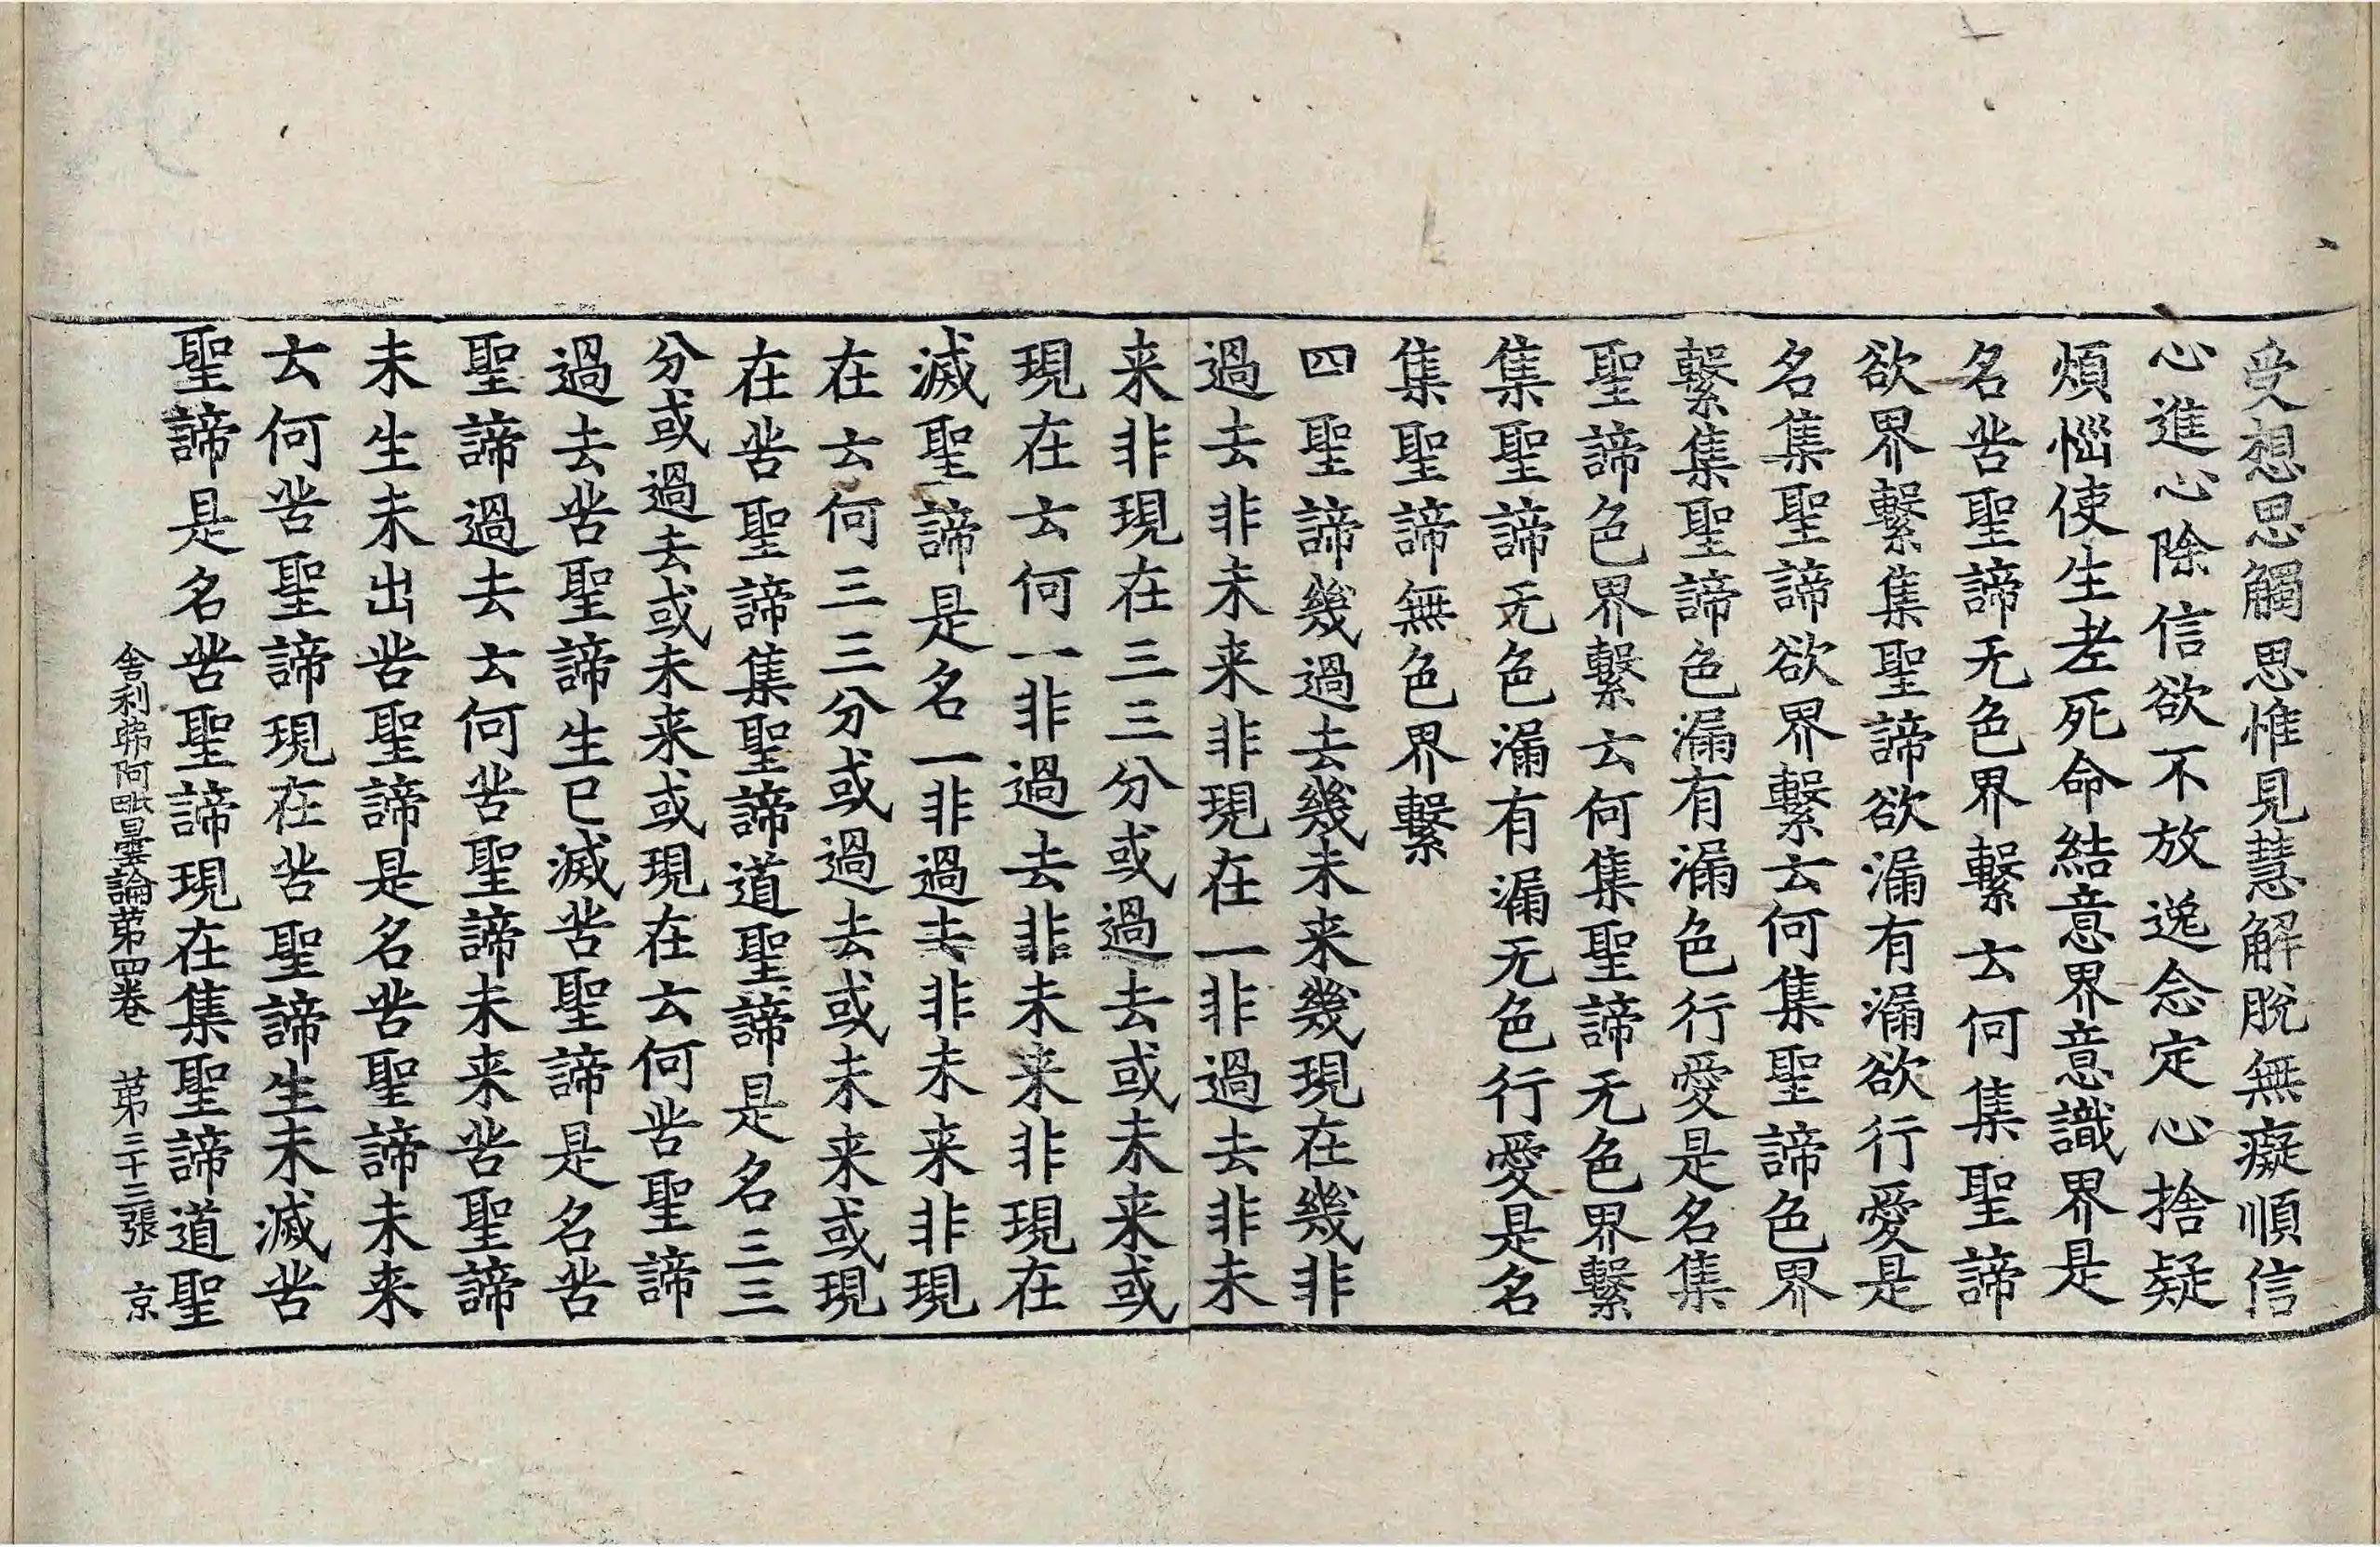 受想思觸思惟見慧解脫無癡順信
心進心除信欲不放逸念定心捨疑
煩惱使生老死命結意界意識界是
名苦聖諦无色界繫云何集聖諦
欲界繫集聖諦欲漏有漏欲行愛是
名集聖諦欲界繫云何集聖諦色界
繫集聖諦色漏有漏色行愛是名集
聖諦色界繫云何集聖諦无色界繫
集聖諦无色漏有漏无色行愛是名
集聖諦無色界繫
四聖諦幾過去幾未来幾現在幾非
過去非未来非現在一非過去非未
来非現在三三分或過去或未来或
現在云何一非過去非未来非現在
滅聖諦是名一非過去非未来非現
在云何三三分或過去或未来或現
在苦聖諦集聖諦道聖諦是名三三
分或過去或未来或現在云何苦聖諦
過去苦聖諦生已滅苦聖諦是名苦
聖諦過去云何苦聖諦未来苦聖諦
未生未出苦聖諦是名苦聖諦未来
云何苦聖諦現在苦聖諦生未滅苦
聖諦是名苦聖諦現在集聖諦道聖
舎利弗阿毗曇論苐四卷 苐三十三張 京